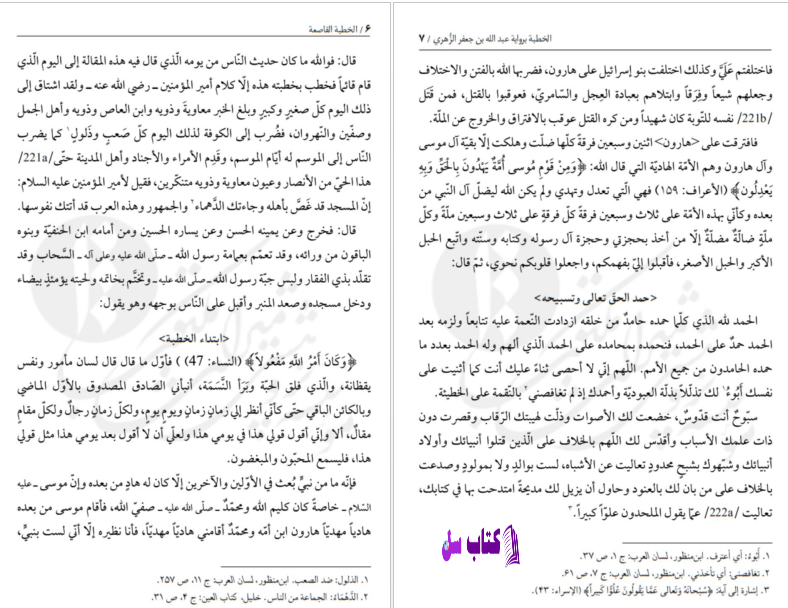 ۶ / الخطبة القاصعة
قال: فوالله ما كان حديث النّاس من يومه الّذي قال فيه هذه المقالة إلى اليوم الّذي
قام قائماً فخطب بخطبته هذه إلّا كلام أمير المؤمنين ـ رضي الله عنه ـ ولقد اشتاق إلى
ذلك اليوم كلّ صغيرٍ وكبيرٍ وبلغ الخبر معاويةَ وذويه وابن العاص وذويه وأهل الجمل
وصفّين والنّهروان، فضُرب إلى الكوفة لذلك اليوم كلّ صَعبٍ وذَلولٍ١ كما يضرب
النّاس إلى الموسم له أيّام الموسم، وقَدِم الأمراء والأجناد وأهل المدينة حتّى /221a/
هذا الحيّ من الأنصار وعيون معاوية وذويه متنكّرين، فقيل لأمير المؤمنين عليه السلام:
إنّ المسجد قد غَصَّ بأهله وجاءتك الدَّهماء٢ والجمهور وهذه العرب قد أتتك نفوسها.
قال: فخرج وعن يمينه الحسن وعن يساره الحسين ومن أمامه ابن الحنفيّة وبنوه
الباقون من ورائه، وقد تعمّم بعمامة رسول الله ـ صلّى الله عليه وعلى آله ـ السَّحاب وقد
تقلّد بذي الفقار ولبس جبّة رسول الله ـ صلّى الله عليه ـ وتختَّم بخاتمه ولحيته يؤمئذٍ بيضاء
ودخل مسجده وصعد المنبر وأقبل على النّاس بوجهه وهو يقول:
<ابتداء الخطبة>
﴿وَكَانَ أَمْرُ اللَّهِ مَفْعُولاً﴾ (النساء: 47) ) فأوّل ما قال قال لسان مأمور ونفس
يقظانة، والّذي فلق الحبّة وبَرَأ النَّسَمَة، أنبأني الصّادق المصدوق بالأوّل الماضي
وبالكائن الباقي حتّى كأنّي أنظر إلي زمانٍ زمانٍ ويومٍ يومٍ، ولكلّ زمانٍ رجالٌ ولكلّ مقامٍ
مقالٌ، ألا وإنّي أقول قولي هذا في يومي هذا ولعلّي أن لا أقول بعد يومي هذا مثل قولي
هذا، فليسمع المحبّون والمبغضون.
فإنّه ما من نبيٍّ بُعث في الأوّلين والآخرين إلّا كان له هادٍ من بعده وإنّ موسى ـ عليه
السّلام ـ خاصةً كان كليم الله ومحمّدٌ ـ صلّى الله عليه ـ صفيّ الله، فأقام موسى من بعده
هادياً مهديّاً هارون ابن أمّه ومحمّدٌ أقامني هاديّاً مهديّاً، فأنا نظيره إلّا أنّي لست بنبيٍّ،
١. الذلول: ضد الصعب. ابن‌منظور، لسان العرب: ج ١١، ص ٢٥٧.
٢. الدَّهْمَاءُ: الجماعة من الناس. خليل، كتاب العين: ج ۴، ص ٣١.
الخطبة برواية عبد الله بن جعفر الزُّهري / ٧
فاختلفتم عَلَيَّ وكذلك اختلفت بنو إسرائيل على هارون، فضربها الله بالفتن والاختلاف
وجعلهم شيعاً وفِرَقاً وابتلاهم بعبادة العِجل والسّامريّ، فعوقبوا بالقتل، فمن قَتَل
/221b/ نفسه للتّوبة كان شهيداً ومن كره القتل عوقب بالافتراق والخروج عن الملّة.
فافترقت على <هارون> اثنين وسبعين فرقةً كلّها ضلّت وهلكت إلّا بقيّة آل موسى
وآل هارون وهم الأمّة الهاديّة التي قال الله: ﴿وَمِنْ قَوْمِ مُوسى أُمَّةٌ يَهْدُونَ بِالْحَقِّ وَبِهِ
يَعْدِلُونَ﴾ (الأعراف: ١٥٩) فهي الّتي تعدل وتهدي ولم يكن الله ليضلّ آل النّبي من
بعده وكأنّي بهذه الأمّة على ثلاث وسبعين فرقةً كلّ فرقةٍ على ثلاث وسبعين ملّةً وكلّ
ملّةٍ ضالّةٌ مضلّةٌ إلّا من أخذ بحجزتي وحجزة آل رسوله وكتابه وسنّته واتّبع الحبل
الأكبر والحبل الأصغر، فأقبلوا إليّ بفهمكم، واجعلوا قلوبكم نحوي، ثمّ قال:
<حمد الحقّ تعالى وتسبيحه>
الحمد لله الذي كلّما حمده حامدٌ من خلقه ازدادت النّعمة عليه تتابعاً ولزمه بعد
الحمد حمدٌ على الحمد، فنحمده بمحامده على الحمد الّذي ألهم وله الحمد بعدد ما
حمده الحامدون من جميع الأمم. اللّهم إنّي لا أحصى ثناءً عليك أنت كما أثنيت على
نفسك أَبُوءُ١ لك تذلّلاً بذلّة العبوديّة وأحمدك إذ لم تغافصني٢ بالنّقمة على الخطيئة.
سبّوحٌ أنت قدّوسٌ، خضعت لك الأصوات وذلّت لهيبتك الرّقاب وقصرت دون
ذات علمك الأسباب وأقدّس لك اللّهم بالخلاف على الّذين قتلوا أنبيائك وأولاد
أنبيائك وشبّهوك بشبحٍ محدودٍ تعاليت عن الأشباه، لست بوالدٍ ولا بمولودٍ وصدعت
بالخلاف على من بان لك بالعنود وحاول أن يزيل لك مديحةً امتدحت بها في كتابك،
تعاليت /222a/ عمّا يقول الملحدون علوّاً كبيراً.٣
كتاب سل
١. أَبُوءُ: أي أعترف. ابن‌منظور، لسان العرب: ج ١، ص ٣٧.
٢. تغافصني: أي تأخذني. ابن‌منظور، لسان العرب: ج ٧، ص ۶١.
٣. إشارة إلى آية: ﴿سُبْحَانَهُ وَتَعَالَى عَمَّا يَقُولُونَ عُلُوًّا كَبِيراً﴾ (الإسراء: ۴٣).